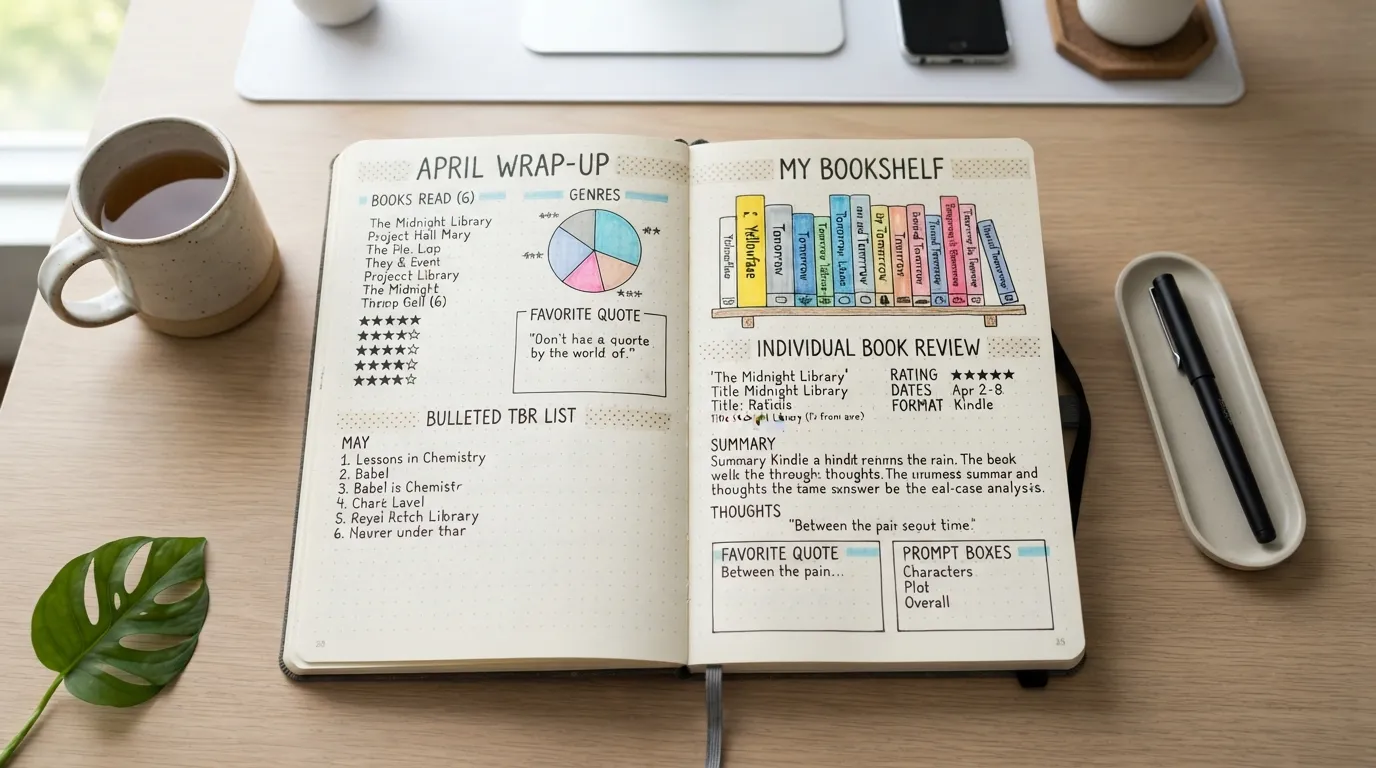 APRIL WRAP-UP
BOOKS READ (6)
The Midnight Library
Project Hall Mary
The Ple. Lap
They & Event
Projecct Library
The Midnight
Throp Gell (6)
★★★★★
★★★★☆
★★★★☆
★★★★☆
★★★★☆
GENRES
FAVORITE QUOTE
"Don't hae a quorte
by the world of."
BULLETED TBR LIST
MAY
1. Lessons in Chemistry
2. Babel
3. Babel is Chemistr
4. Chart Lavel
5. Reyei Retch Library
6. Naurer under thar
MY BOOKSHELF
Yellowface
Tomorrow
Tomorrow
Tomorrow
INDIVIDUAL BOOK REVIEW
'The Midnight Library'
Title Midnight Library
Title: Raticls
RATING ★★★★★
DATES Apr 2-8
FORMAT Kindle
SUMMARY
Summary Kindle a hindit renrns the rain. The book
welk the through: thoughts. The urumess summar and
thoughts the tame sxnswer be the eal-case analysis.
THOUGHTS
"Between the pair seout time."
FAVORITE QUOTE
Between the pain...
PROMPT BOXES
Characters
Plot
Overall